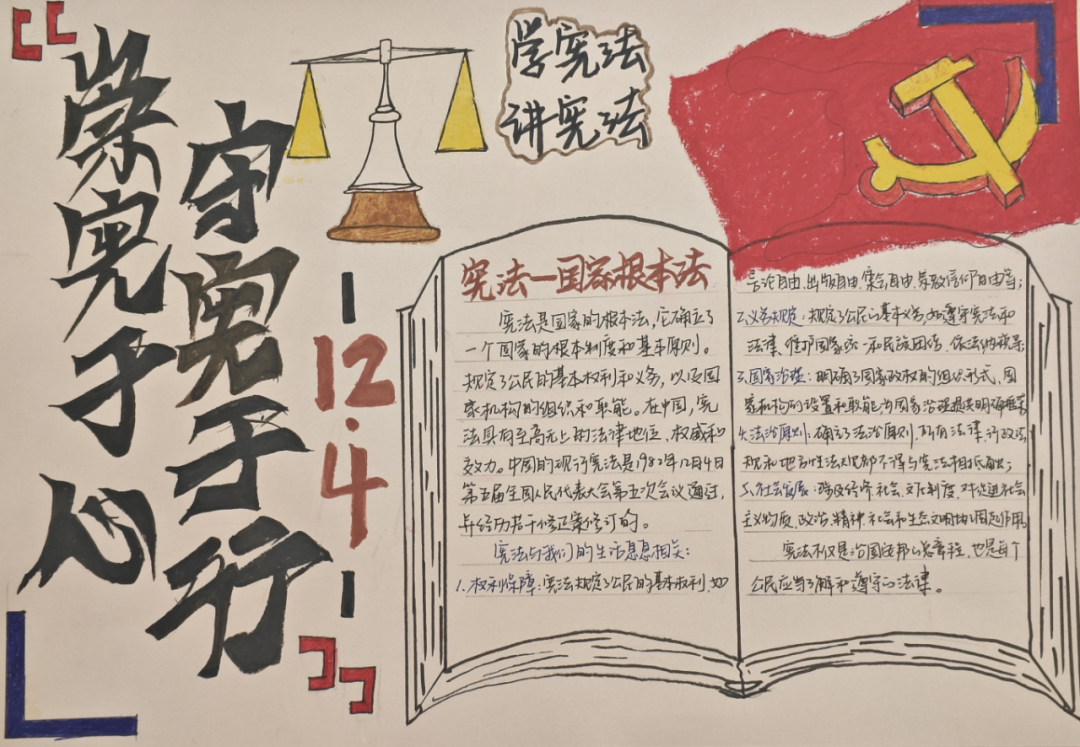 学宪于心
守宪于行
12.4
学宪法
讲宪法
宪法—国家根本法
宪法是国家的根本法,它确立了
一个国家的根本制度和基本原则。
规定了公民的基本权利和义务,以及国
家机构的组织和职能。在中国,宪
法具有至高无上的法律地位、权威和
效力。中国的现行宪法是1982年12月4日
第五届全国人民代表大会第五次会议通过,
并经历若干修正案修订的。
宪法与我们的生活息息相关:
1.权利保障:宪法规定了公民的基本权利,如
言论自由、出版自由、集会自由、宗教信仰自由等;
2.义务规定:规定了公民的基本义务,如遵守宪法和
法律、维护国家统一和民族团结、依法纳税等
3.国家治理:明确了国家政权的组织形式、国
家机构的设置和职能,为国家治理提供明确框架
法治原则:确立了法治原则,所有法律、行政法
规和地方性法规都不得与宪法相抵触;
5.社会发展:涉及经济、社会、文化制度,对促进社会
主义物质、政治、精神、社会和生态文明协调起作用
宪法不仅是治国安邦的总章程,也是每个
公民应当了解和遵守的法律。